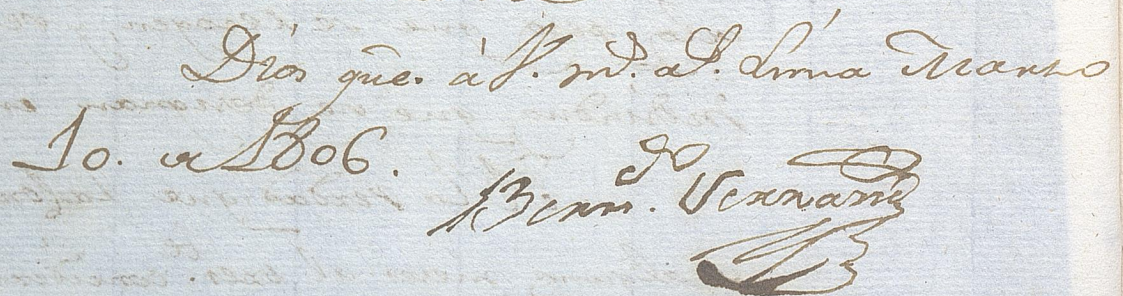 Dios gũe. à V. md. as. Lima Marzo
10. de 1806.
Bern.do Fernandz